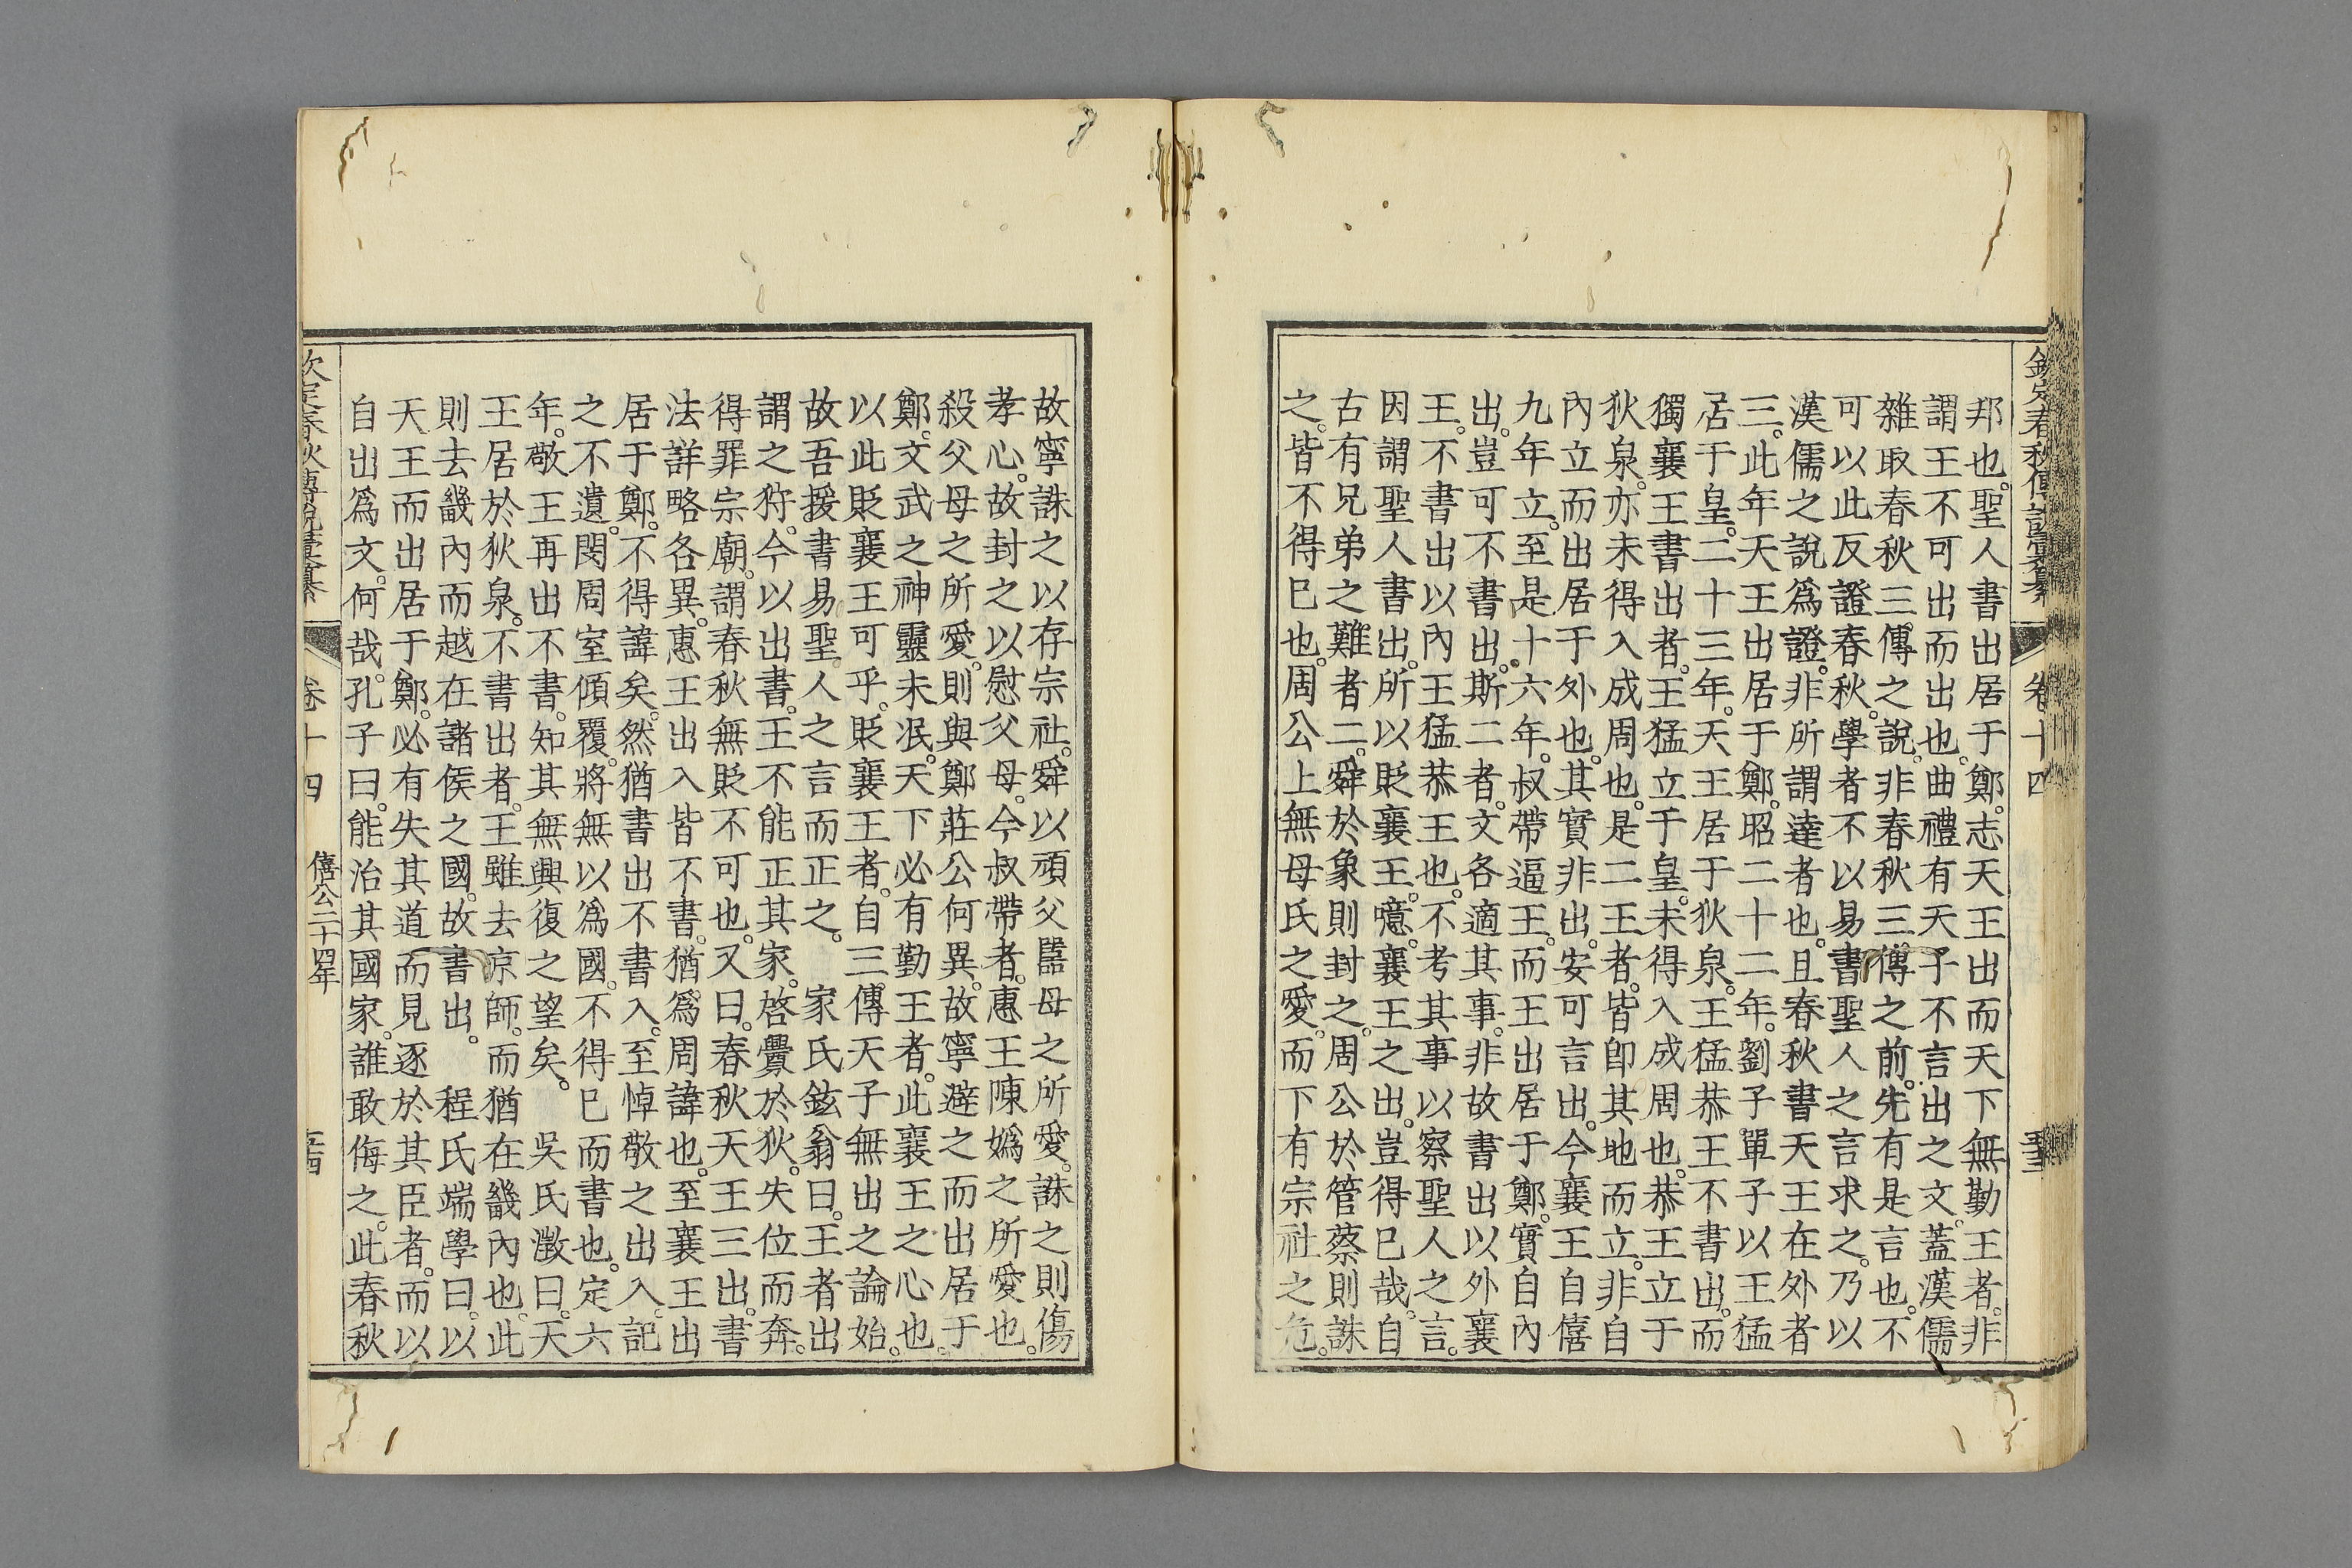 欽定春秋傳說彙纂 卷十四
邦也。聖人書出居于鄭。志天王出而天下無勤王者。非
謂王不可出而出也。曲禮有天子不言出之文。蓋漢儒
雜取春秋三傳之說。非春秋三傳之前。先有是言也。不
可以此反證春秋。學者不以易書聖人之言求之。乃以
漢儒之說爲證。非所謂達者也。且春秋書天王在外者
三。此年天王出居于鄭。昭二十二年。劉子單子以王猛
居于皇。二十三年。天王居于狄泉。王猛恭王不書出。而
獨襄王書出者。王猛立于皇。未得入成周也。恭王立于
狄泉。亦未得入成周也。是二王者。皆卽其地而立。非自
內立而出居于外也。其實非出。安可言出。今襄王自僖
九年立。至是十六年。叔帶逼王。而王出居于鄭。實自內
出。豈可不書出。斯二者。文各適其事。非故書出以外襄
王。不書出以內王猛恭王也。不考其事以察聖人之言。
因謂聖人書出。所以貶襄王。噫。襄王之出。豈得已哉。自
古有兄弟之難者二。舜於象則封之。周公於管蔡則誅
之。皆不得已也。周公上無母氏之愛。而下有宗社之危。
故寧誅之以存宗社。舜以頑父嚚母之所愛。誅之則傷
孝心。故封之以慰父母。今叔帶者。惠王陳嬀之所愛也。
殺父母之所愛。則與鄭莊公何異。故寧避之而出居于
鄭。文武之神靈未冺。天下必有勤王者。此襄王之心也。
以此貶襄王可乎。貶襄王者。自三傳天子無出之論始。
故吾援書易聖人之言而正之。 家氏鉉翁曰。王者出
謂之狩。今以出書。王不能正其家。啓釁於狄。失位而奔。
得罪宗廟。謂春秋無貶不可也。又曰。春秋天王三出。書
法詳略各異。惠王出入皆不書。猶爲周諱也。至襄王出
居于鄭。不得諱矣。然猶書出不書入。至悼敬之出入。記
之不遺。閔周室傾覆。將無以爲國。不得已而書也。定六
年。敬王再出不書。知其無興復之望矣。 吳氏澂曰。天
王居於狄泉。不書出者。王雖去京師。而猶在畿內也。此
則去畿內而越在諸侯之國。故書出。 程氏端學曰。以
天王而出居于鄭。必有失其道而見逐於其臣者。而以
自出爲文。何哉。孔子曰。能治其國家。誰敢侮之。此春秋
欽定春秋傳說彙纂 卷十四 僖公二十四年